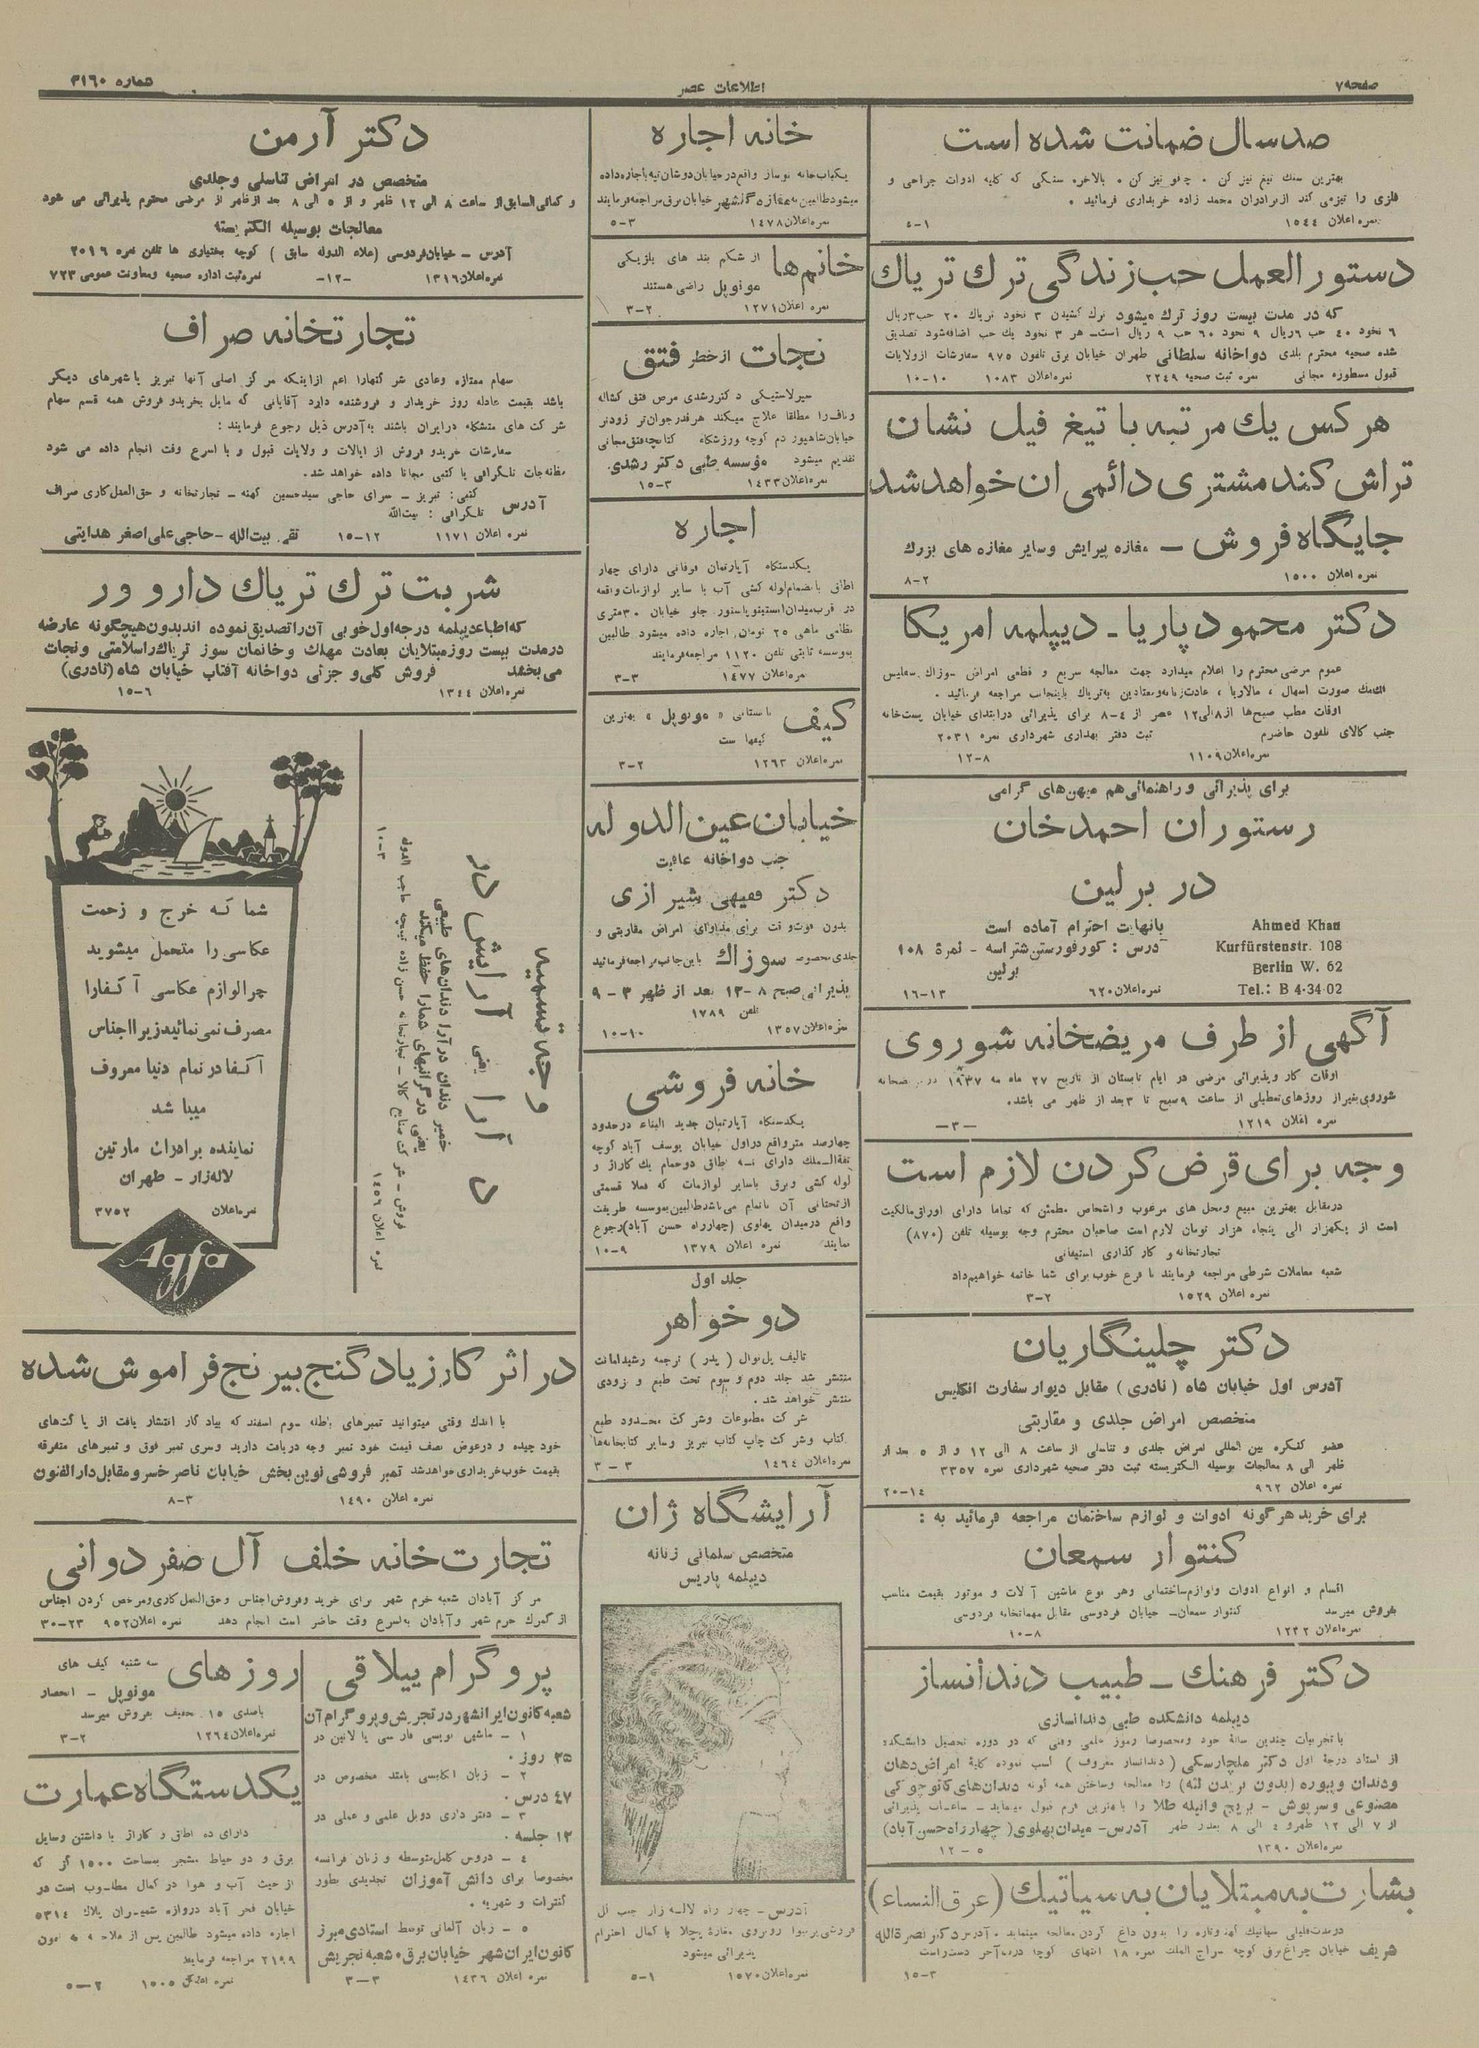 صفحه ۷
اطلاعات عصر
شماره ۳۱۶۰
صد سال ضمانت شده است
بهترین سنك تیغ تیز کن ۰ چاقو تیز کن ۰ بالاخره سنگی که کلیه ادوات جراحی و
فلزی را تیز می کند از برادران محمد زاده خریداری فرمائید ۰
نمره اعلان ۱۵۴۴ ۱-۵
دستور العمل حب زندگی ترك تریاك
که در مدت بیست روز ترك میشود ترك کشیدن ۳ نخود تریاك ۲۰ حب ۳ ریال
۶ نخود ۴۰ حب ۶ ریال ۹ نخود ۶۰ حب ۹ ریال است- هر ۳ نخود یك حب اضافه شود تصدیق
شده صحیه محترم بلدی دواخانه سلطانی طهران خیابان برق تلفون ۹۷۵ سفارشات از ولایات
قبول مسطوره مجانی نمره ثبت صحیه ۲۲۴۹ نمره اعلان ۱۰۸۳ ۱۰-۱۰
هر کس یك مرتبه با تیغ فیل نشان
تراش کند مشتری دائمی ان خواهد شد
جایگاه فروش - مغازه پیرایش و سایر مغازه های بزرك
نمره اعلان ۱۵۰۰ ۲-۸
دکتر محمود پاریا - دیپلمه امریکا
عموم مرضی محترم را اعلام میدارد جهت معالجه سریع و قطعی امراض سوزاك سفلیس
صورت اسهال ، مالاریا ، معتادین به تریاك باینجانب مراجعه فرمائید ۰
اوقات مطب صبح ها از ۸ الی ۱۲ عصر از ۴-۸ برای پذیرائی در ابتدای خیابان پست خانه
جنب کالای تلفون حاضرم ثبت دفتر بهداری شهرداری نمره ۲۰۳۱
نمره اعلان ۱۱۰۹ ۸-۱۲
برای پذیرائی و راهنمائی هم میهن های گرامی
رستوران احمد خان
در برلین
بانهایت احترام آماده است
آدرس : کورفورستن شتراسه - نمرهٔ ۱۰۸
برلین
نمره اعلان ۶۲۰ ۱۳-۱۶
Ahmed Khan
Kurfürstenstr. 108
Berlin W. 62
Tel.: B 4-34-02
آگهی از طرف مریضخانه شوروی
اوقات کار و پذیرائی مرضی در ایام تابستان از تاریخ ۲۷ ماه مه ۱۹۳۷
شوروی بغیر از روزهای تعطیلی از ساعت ۹ صبح تا ۳ بعد از ظهر می باشد.
نمره اعلان ۱۲۱۹ -۳-
وجه برای قرض کردن لازم است
در مقابل بهترین مبیع و محل های مرغوب و اشخاص مطمئن که تماما دارای اوراق مالکیت
است از یکهزار الی پنجاه هزار تومان لازم است صاحبان محترم وجه بوسیله تلفن (۸۷۰)
تجارتخانه و کار گذاری استیفائی
شعبه معاملات شرطی مراجعه فرمایند با فرع خوب برای شما خاتمه خواهیم داد
نمره اعلان ۱۵۲۹ ۲-۳
دکتر چلینگاریان
آدرس اول خیابان شاه (نادری) مقابل دیوار سفارت انگلیس
متخصص امراض جلدی و مقاربتی
عضو کنگره بین المللی امراض جلدی و تناسلی از ساعت ۸ الی ۱۲ و از ۵ بعد از
ظهر الی ۸ معالجات بوسیله الکتریسته ثبت دفتر صحیه شهرداری نمره ۳۳۵۷
نمره اعلان ۹۶۲ ۱۴-۲۰
برای خرید هر گونه ادوات و لوازم ساختمان مراجعه فرمائید به :
کنتوار سمعان
اقسام و انواع ادوات و لوازم ساختمانی و هر نوع ماشین آلات و موتور بقیمت مناسب
بفروش میرسد کنتوار سمعان- خیابان فردوسی مقابل مهمانخانه فردوسی
نمره اعلان ۱۲۳۲ ۸-۱۰
دکتر فرهنك - طبیب دندانساز
دیپلمه دانشکده طبی دندانسازی
با تجربیات چندین ساله خود و مخصوصا رموز علمی و فنی که در دوره تحصیل دانشکده
از استاد درجهٔ اول دکتر ملچارسکی (دندانساز معروف) کسب نموده کلیهٔ امراض دهان
و دندان و پیوره (بدون بریدن لثه) را معالجه و ساختن همه گونه دندان های کائوچوکی
مصنوعی و سرپوش - بریج وانیله طلا را با بهترین فرم قبول مینماید - ساعات پذیرائی
از ۷ الی ۱۲ ظهر و ۴ الی ۸ بعد از ظهر آدرس- میدان پهلوی (چهار راه حسن آباد)
نمره اعلان ۱۳۹۰ ۵-۱۲
بشارت به مبتلایان به سیاتیك (عرق النساء)
سیاتیك کهنه و تازه را بدون داغ کردن معالجه مینماید ۰ آدرس دکتر نصرة الله
شریف خیابان چراغ برق کوچه سراج الملك نمره ۱۸ انتهای کوچه درب آخر دست راست
۳-۱۵
خانه اجاره
یکباب خانه نوساز واقع در خیابان دوشان تپه باجاره داده
میشود طالبین به مغازه گلشهر خیابان برق مراجعه فرمایند
نمره اعلان ۱۴۷۸ ۳-۵
خانم ها
از شکم بند های بلژیکی
مونوپل راضی هستند
نمره اعلان ۱۲۷۱ ۲-۳
نجات از خطر فتق
دکتر رشدی مرض فتق کشاله
و ناف را مطلقا علاج میکند هر قدر جوان تر زودتر
خیابان شاهپور دم کوچه ورزشگاه کتابچه فتق مجانی
تقدیم میشود مؤسسه طبی دکتر رشدی
نمره اعلان ۱۴۳۳ ۳-۱۵
اجاره
یکدستگاه آپارتمان فوقانی دارای چهار
اطاق بانضمام لوله کشی آب با سایر لوازمات واقعه
در قرب میدان انستیتو پاستور جلو خیابان ۳۰ متری
نظامی ماهی ۲۵ تومان اجاره داده میشود طالبین
بموسسه تابشی تلفن ۱۱۲۰ مراجعه فرمایند
نمره اعلان ۱۴۷۷ ۳-۳
کیف
تابستانی « مونوپل » بهترین
کیفها ست
نمره اعلان ۱۲۶۳ ۲-۳
خیابان عین الدوله
جنب دواخانه عافیت
دکتر فقیهی شیرازی
بدون فوت وقت برای مداوای امراض مقاربتی و
جلدی مخصوصا سوزاك باین جانب مراجعه فرمائید
پذیرائی صبح ۸-۱۳ بعد از ظهر ۳-۹
تلفن ۱۷۸۹
نمره اعلان ۱۳۵۷ ۱۰-۱۰
خانه فروشی
یکدستگاه آپارتمان جدید البناء در حدود
چهارصد متر واقع در اول خیابان یوسف آباد کوچه
ثقة الملك دارای نه اطاق دو حمام یك گاراژ و
لوله کشی و برق باسایر لوازمات که فعلا قسمتی
از تحتانی آن ناتمام می باشد طالبین بموسسه ظریفت
واقع در میدان پهلوی (چهارراه حسن آباد) رجوع
نمایند نمره اعلان ۱۳۷۹ ۹-۱۰
جلد اول
دو خواهر
تالیف پل نوال (پدر) ترجمه رشید امانت
منتشر شد جلد دوم و سوم تحت طبع و بزودی
منتشر خواهد شد ۰
شرکت مطبوعات و شرکت محدود طبع
کتاب و شرکت چاپ کتاب تبریز و سایر کتابخانه ها
نمره اعلان ۱۴۶۴ ۳-۳
آرایشگاه ژان
متخصص سلمانی زنانه
دیپلمه پاریس
آدرس- چهار راه لاله زار جنب ال
روبروی مغازهٔ پیچلا با کمال احترام
پذیرائی میشود
نمره اعلان ۱۵۷۰ ۱-۵
دکتر آرمن
متخصص در امراض تناسلی و جلدی
و کمافی السابق از ساعت ۸ الی ۱۲ ظهر و از ۵ الی ۸ بعد از ظهر از مرضی محترم پذیرائی می شود
معالجات بوسیله الکتریسته
آدرس - خیابان فردوسی (علاء الدوله سابق) کوچه بختیاری ها تلفن نمره ۲۵۱۶
نمره اعلان ۱۳۱۶ -۱۲- نمره ثبت اداره صحیه و معاونت عمومی ۷۲۳
تجارتخانه صراف
سهام ممتازه و عادی شرکتها را اعم از اینکه مرکز اصلی آنها تبریز یا شهرهای دیگر
باشد بقیمت عادله روز خریدار و فروشنده دارد آقایانی که مایل بخرید و فروش همه قسم سهام
شرکت های متشکله در ایران باشند به آدرس ذیل رجوع فرمایند :
سفارشات خرید و فروش از ایالات و ولایات قبول و با اسرع وقت انجام داده می شود
مظنه جات تلگرافی یا کتبی مجانا داده خواهد شد.
آدرس کتبی : تبریز - سرای حاجی سید حسین کهنه - تجارتخانه و حق العمل کاری صراف
تلگرافی : بیت الله
نمره اعلان ۱۱۷۱ ۱۲-۱۵ تقی بیت الله - حاجی علی اصغر هدایتی
شربت ترك تریاك دارو ور
که اطباء دیپلمه درجه اول خوبی آن را تصدیق نموده اند بدون هیچگونه عارضه
در مدت بیست روز مبتلایان بعادت مهلك و خانمان سوز تریاك را سلامتی و نجات
می بخشد فروش کلی و جزئی دواخانه آفتاب خیابان شاه (نادری)
نمره اعلان ۱۳۴۴ ۶-۱۵
وجه تسمیه
د آرا یعنی آرایش در
خمیر دندان در آرا دندان های طبیعی
یعنی در گرانبهای شمارا حفظ میکند
فروش - شرکت صنایع کالا - تجارتخانه حسن زاده تیمچه حاجب الدوله
نمره اعلان ۱۴۵۶ ۳-۱۰
شما که خرج و زحمت
عکاسی را متحمل میشوید
چرا لوازم عکاسی آگفا را
مصرف نمی نمائید زیرا اجناس
آگفا در تمام دنیا معروف
میبا شد
نماینده برادران مارتین
لاله زار - طهران
نمره اعلان ۳۷۵۲
Agfa
در اثر کار زیاد گنج بیرنج فراموش شده
با اندك وقتی میتوانید تمبرهای باطله سوم اسفند که بیادگار انتشار یافت از پاکت های
خود چیده و در عوض نصف قیمت خود تمبر وجه دریافت دارید و سری تمبر فوق و تمبرهای متفرقه
بقیمت خوب خریداری خواهد شد تمبر فروشی نوین بخش خیابان ناصر خسرو مقابل دار الفنون
نمره اعلان ۱۴۹۰ ۳-۸
تجارت خانه خلف آل صفر دوانی
مرکز آبادان شعبه خرم شهر برای خرید و فروش اجناس و حق العمل کاری و مرخص کردن اجناس
از گمرك خرم شهر و آبادان به اسرع وقت حاضر است انجام دهد نمره اعلان ۹۵۲ ۲۳-۳۰
پروگرام ییلاقی
شعبه کانون ایرانشهر در تجریش و پروگرام آن
۱ - ماشین نویسی فارسی یا لاتین در
۲۵ روز ۰
۲ - زبان انگلیسی بامتد مخصوص در
۴۷ درس ۰
۳ - دفتر داری دوبل علمی و عملی در
۱۲ جلسه ۰
۴ - دروس کامل متوسطه و زبان فرانسه
مخصوصا برای دانش آموزان تجدیدی بطور
کنترات و شهریه ۰
۵ - زبان آلمانی توسط استادی مبرز
کانون ایران شهر خیابان برق ۰ شعبه تجریش
نمره اعلان ۱۴۳۶ ۳-۳
روزهای
سه شنبه کیف های
مونوپل - انحصار
باصدی ۱۵ تخفیف بفروش میرسد
نمره اعلان ۱۲۶۴ ۲-۳
یکدستگاه عمارت
دارای ده اطاق و گاراژ با داشتن وسایل
برق و دو حیاط مشجر بمساحت ۱۵۰۰ گز که
از حیث آب و هوا در کمال مطلوب است در
خیابان فخر آباد دروازه شمیران پلاك ۵۳۱۴
اجاره داده میشود طالبین پس از ملاحظه به تلفون
۲۱۹۹ مراجعه فرمایند
نمره اعلان ۱۵۰۵ ۲-۵